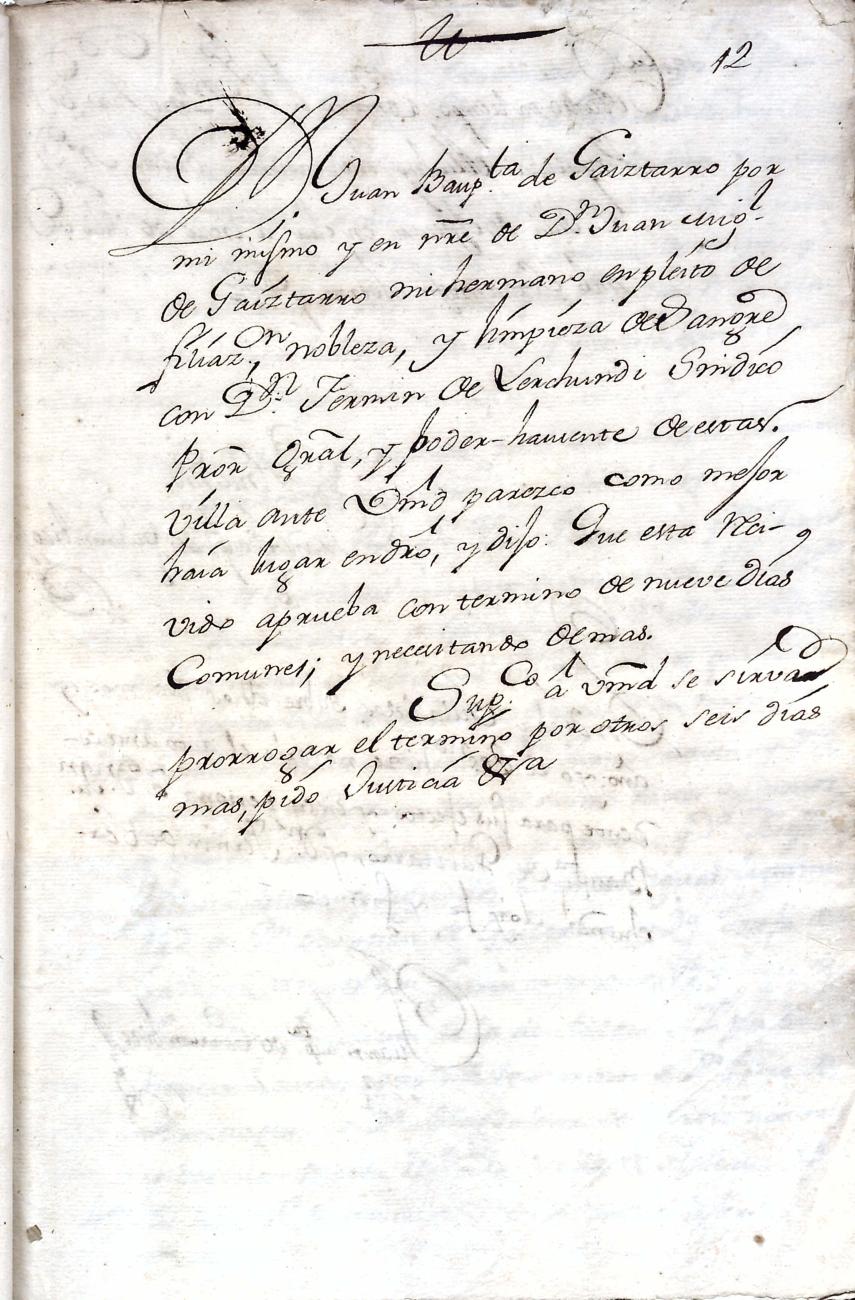 12
Dn Juan Baup.ta de Gaiztarro por
mi mismo y en nre de D.n Juan Mig.l
de Gaiztarro mi hermano en pleito de
filiaz.on, nobleza, y limpieza de Sangre
con D.n Fermin de Lerchundi Sindico
Pror Gral, y poder-haviente de esta
villa ante Vmd parezco como mejor
haia lugar en dro, y dijo: Que esta Rei-
vido aprueba con termino de nueve dias
Comunes; y necesitando demas.
Sup.co a vmd se sirva
prorrogar el termino por otros seis dias
mas, pido Justicia &a